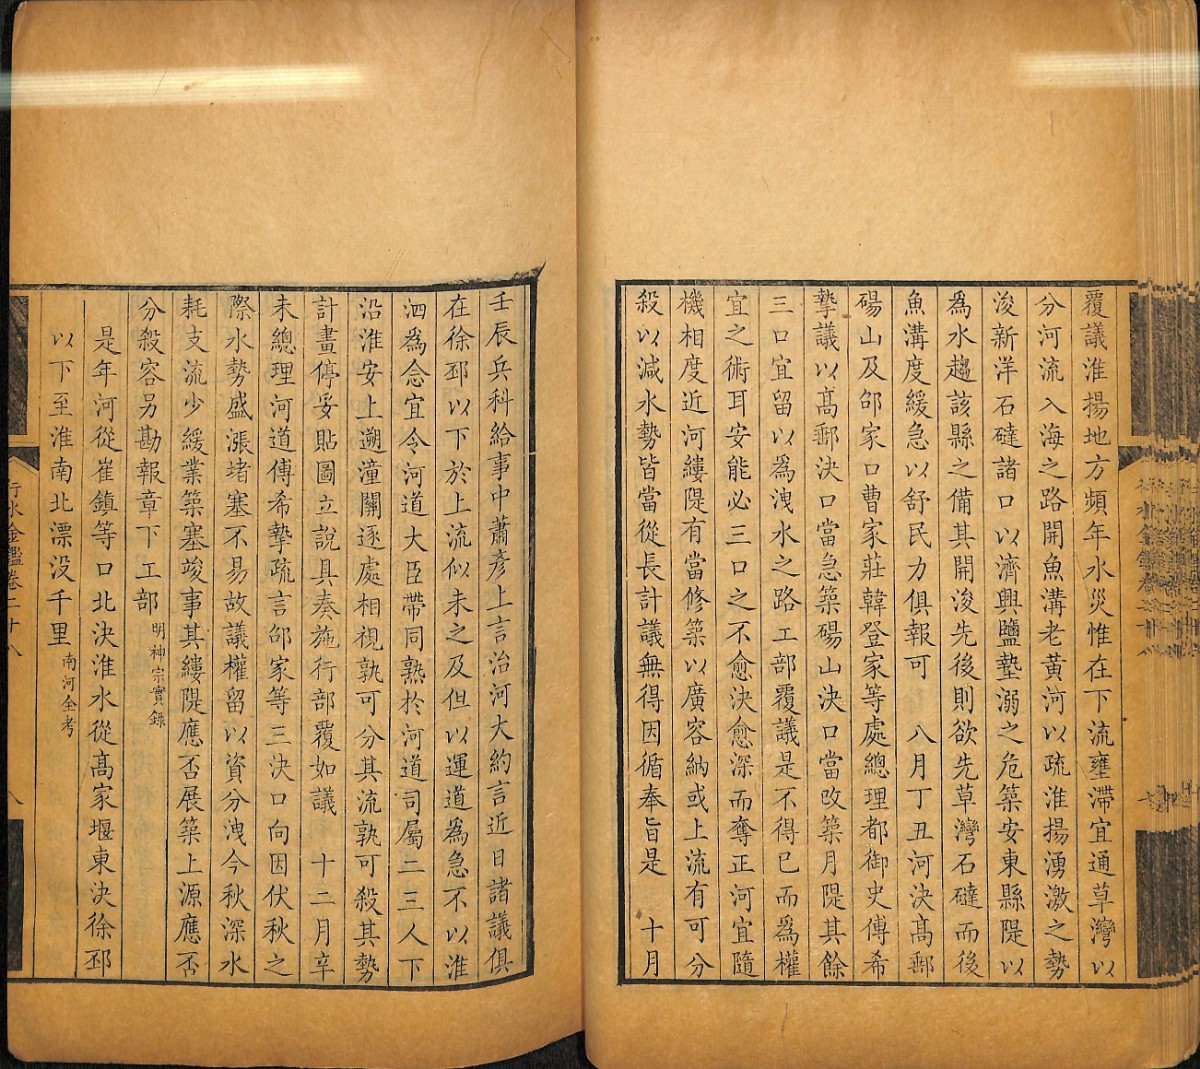 覆議淮揚地方頻年水災惟在下流壅滯宜通草灣以
分河流入海之路開魚溝老黃河以疏淮揚湧激之勢
浚新洋石䃮諸口以濟興鹽墊溺之危築安東縣隄以
為水趨該縣之備其開浚先後則欲先草灣石䃮而後
魚溝度緩急以舒民力俱報可　八月丁丑河決高郵
碭山及邵家口曹家莊韓登家等處總理都御史傅希
摯議以高郵決口當急築碭山決口當改築月隄其餘
三口宜留以為洩水之路工部覆議是不得已而為權
宜之術耳安能必三口之不愈決愈深而奪正河宜隨
機相度近河縷隄有當修築以廣容納或上流有可分
殺以減水勢皆當從長計議無得因循奉旨是　十月
壬辰兵科給事中蕭彥上言治河大約言近日諸議俱
在徐邳以下於上流似未之及但以運道為急不以淮
泗為念宜令河道大臣帶同熟於河道司屬二三人下
沿淮安上遡潼關逐處相視孰可分其流孰可殺其勢
計畫停妥貼圖立說具奏施行部覆如議　十二月辛
未總理河道傅希摯疏言邵家等三決口向因伏秋之
際水勢盛漲堵塞不易故議權留以資分洩今秋深水
耗支流少緩業築塞竣事其縷隄應否展築上源應否
分殺容另勘報章下工部明神宗實錄
是年河從崔鎮等口北決淮水從高家堰東決徐邳
以下至淮南北漂没千里南河全考
行水金鑑卷二十八
八